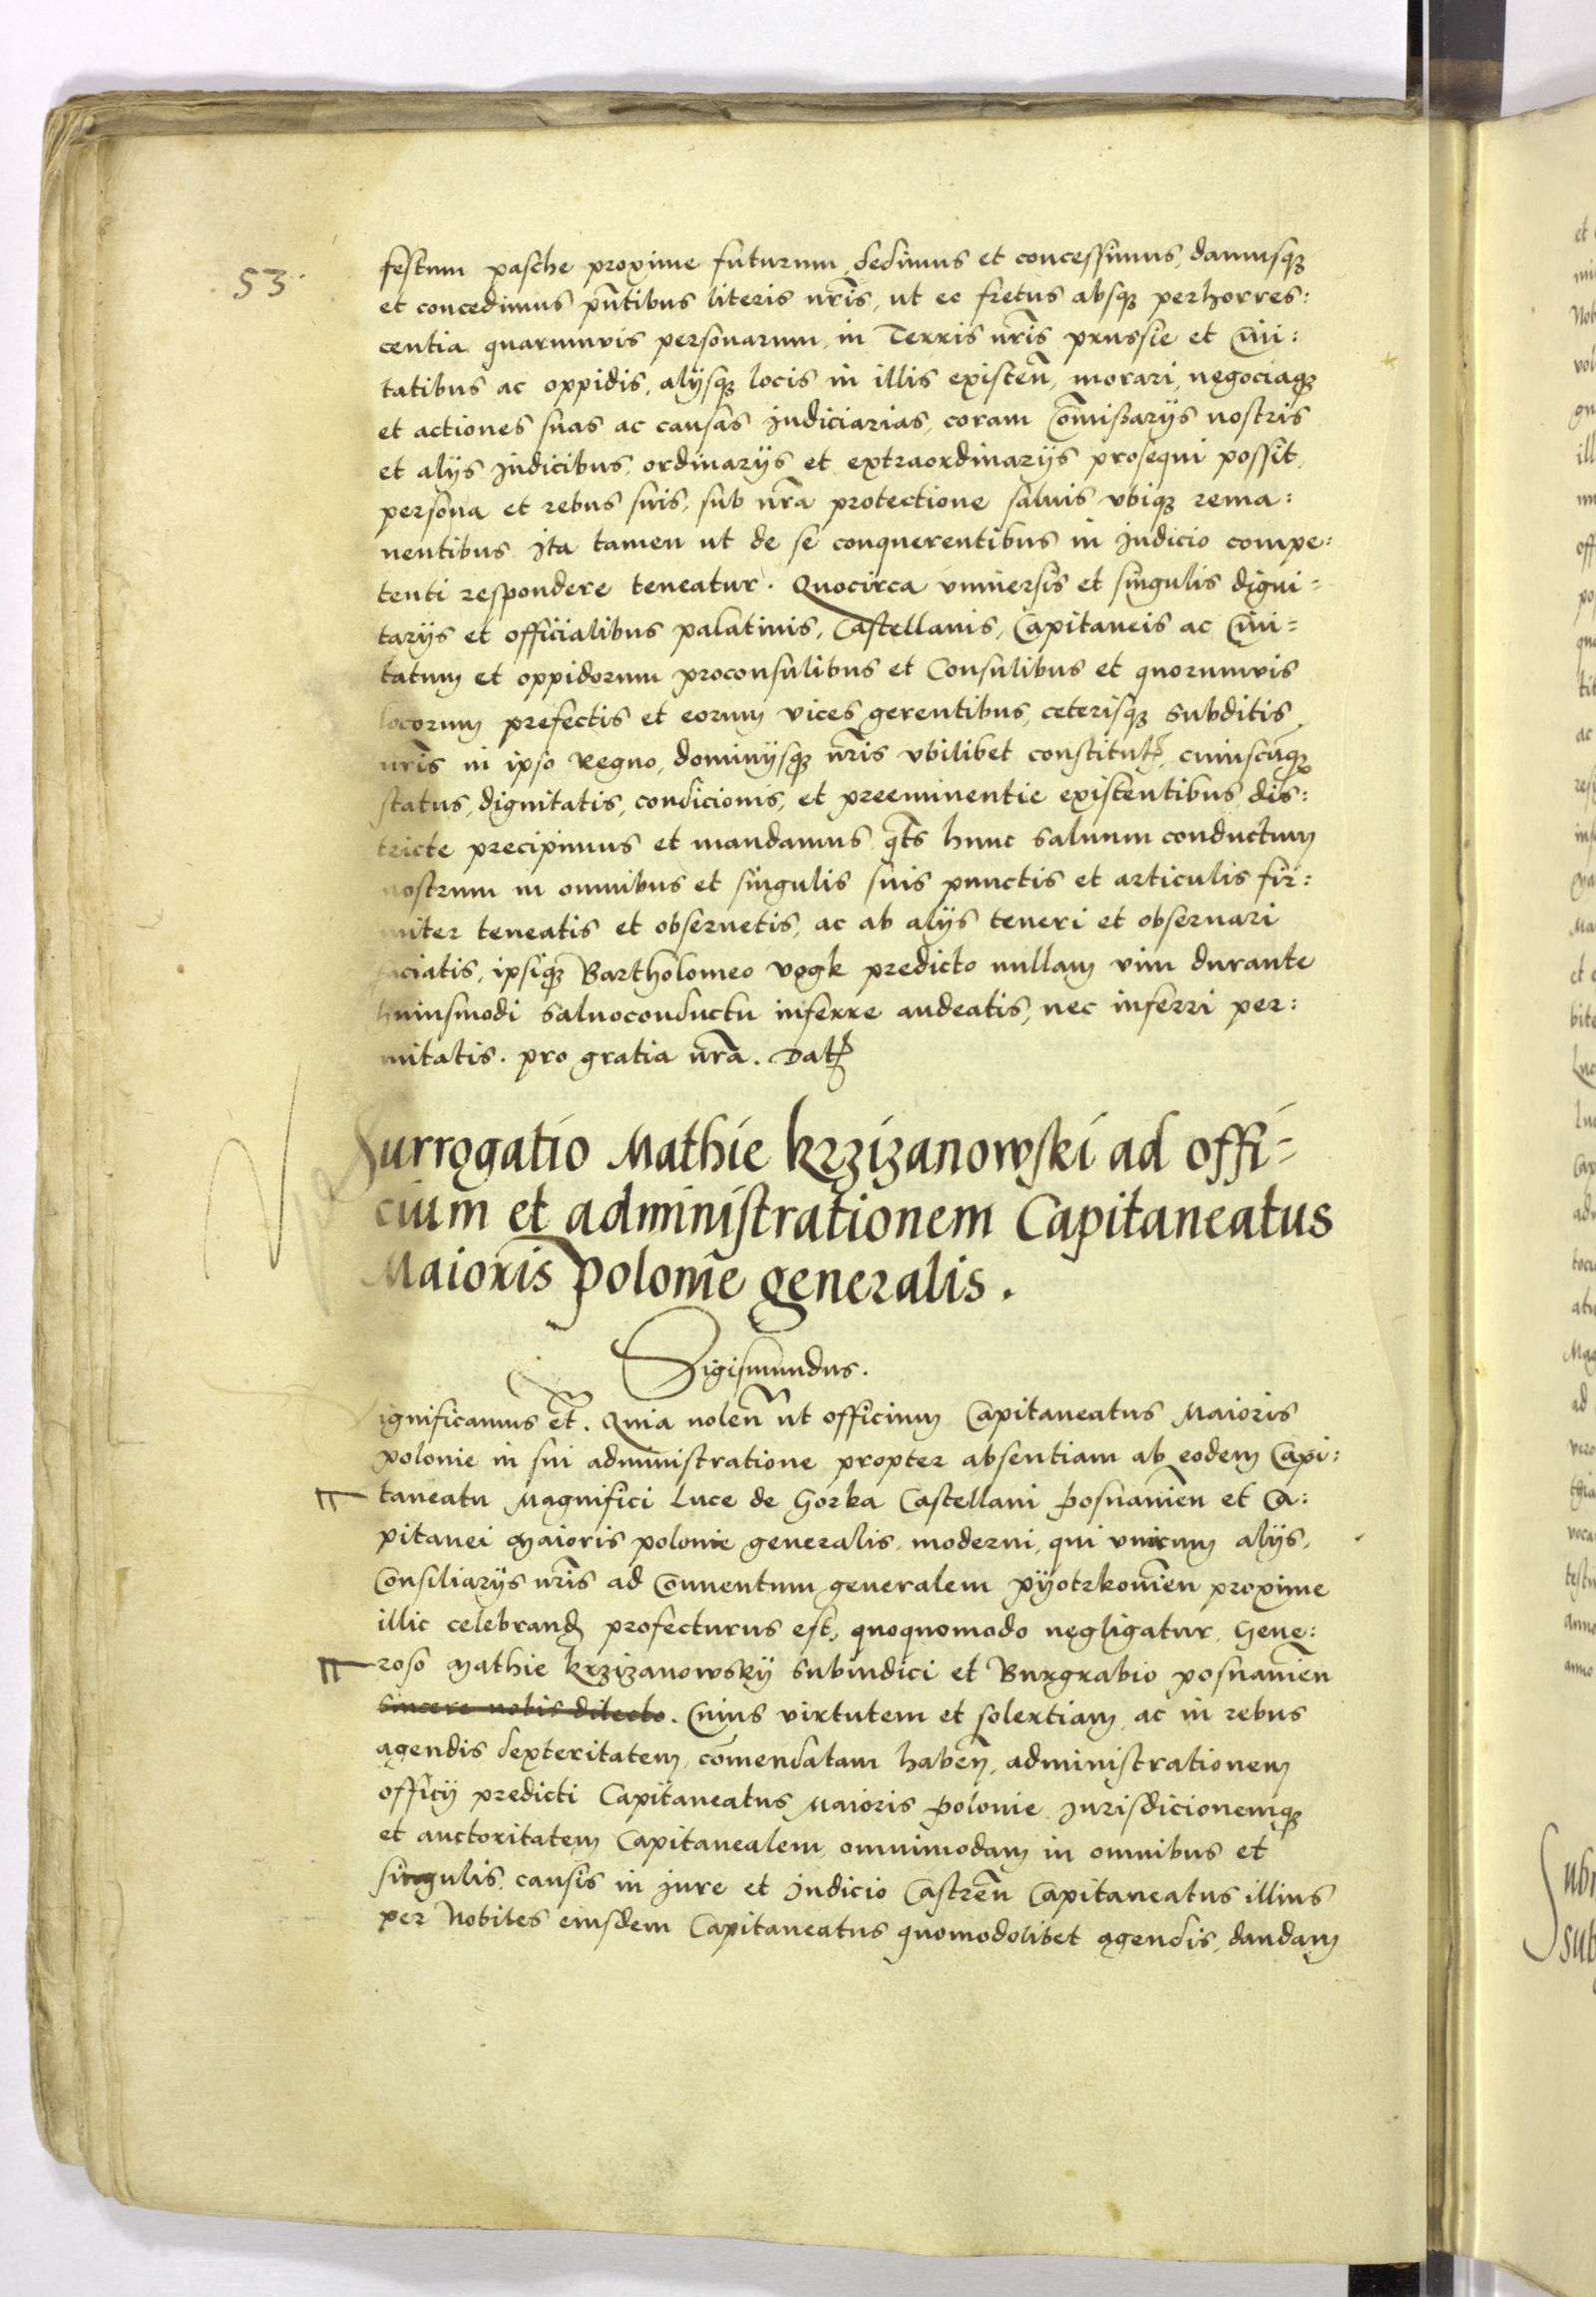 53
festum pasche proxime futurum, dedimus et concessimus, damusq
et concedimus pñtibus literis nr̃is, ut eo fretus absq perhorres:
centia quarumvis personarum, in Terris nr̃is prussie et Ciui:
tatibus ac oppidis, alijsq locis in illis existeñ, morari, negociaq
et actiones suas ac causas Judiciarias, coram Com̃issarijs nostris
et alijs Judicibus, ordinarijs et extraordinarijs prosequi possit,
persona et rebus suis, sub nr̃a protectione saluis vbiq rema:
nentibus Ita tamen ut de se conquerentibus in Judicio compe:
tenti respondere teneatur. Quocirca vniuersis et singulis digni=
tarijs et officialibus palatinis, Castellanis, Capitaneis ac Ciui=
tatum et oppidorum proconsulibus et Consulibus et quorumvis
locorum prefectis et eorum vices gerentibus, ceterisq subditis
nr̃is in ipso Regno, dominijsq nr̃is vbilibet constitut, cuiuscũq
status, dignitatis, condicionis, et preeminentie existentibus, dis:
tricte precipimus et mandamus q̃ts hunc saluum conductum
nostrum in omnibus et singulis suis punctis et articulis fir:
miter teneatis et obseruetis, ac ab alijs teneri et obseruari
faciatis, ipsiq Bartholomeo vogk predicto nullam vim durante
huiusmodi saluoconductu inferre audeatis, nec inferri per:
mitatis. pro gratia nr̃a. Dat
Surrogatio Mathie krzizanowski ad offi=
cium et administrationem Capitaneatus
Maioris Polonie generalis.
Sigismundus.
Significamus et̃. Quia uoleñ ut officium Capitaneatus Maioris
polonie in sui administratione propter absentiam ab eodem Capi:
taneatu Magnifici Luce de Gorka Castellani Posnanieñ et Ca:
pitanei Maioris polonie generalis moderni, qui vnacum alijs,
Consiliarijs nr̃is ad Conuentum generalem pyotrkouieñ proxime
illic celebrand profecturus est, quoquomodo negligatur, Gene:
roso Mathie krzizanowsky subiudici et Burgrabio posnanieñ
sincere nobis dilecto. Cuius virtutem et solertiam ac in rebus
agendis dexteritatem, com̃endatam habeñ, administrationem
officij predicti Capitaneatus Maioris Polonie Jurisdicionemq
et auctoritatem Capitanealem omnimodam in omnibus et
singulis causis in Jure et Judicio Castreñ Capitaneatus illius
per Nobiles eiusdem Capitaneatus quomodolibet agendis, dandam